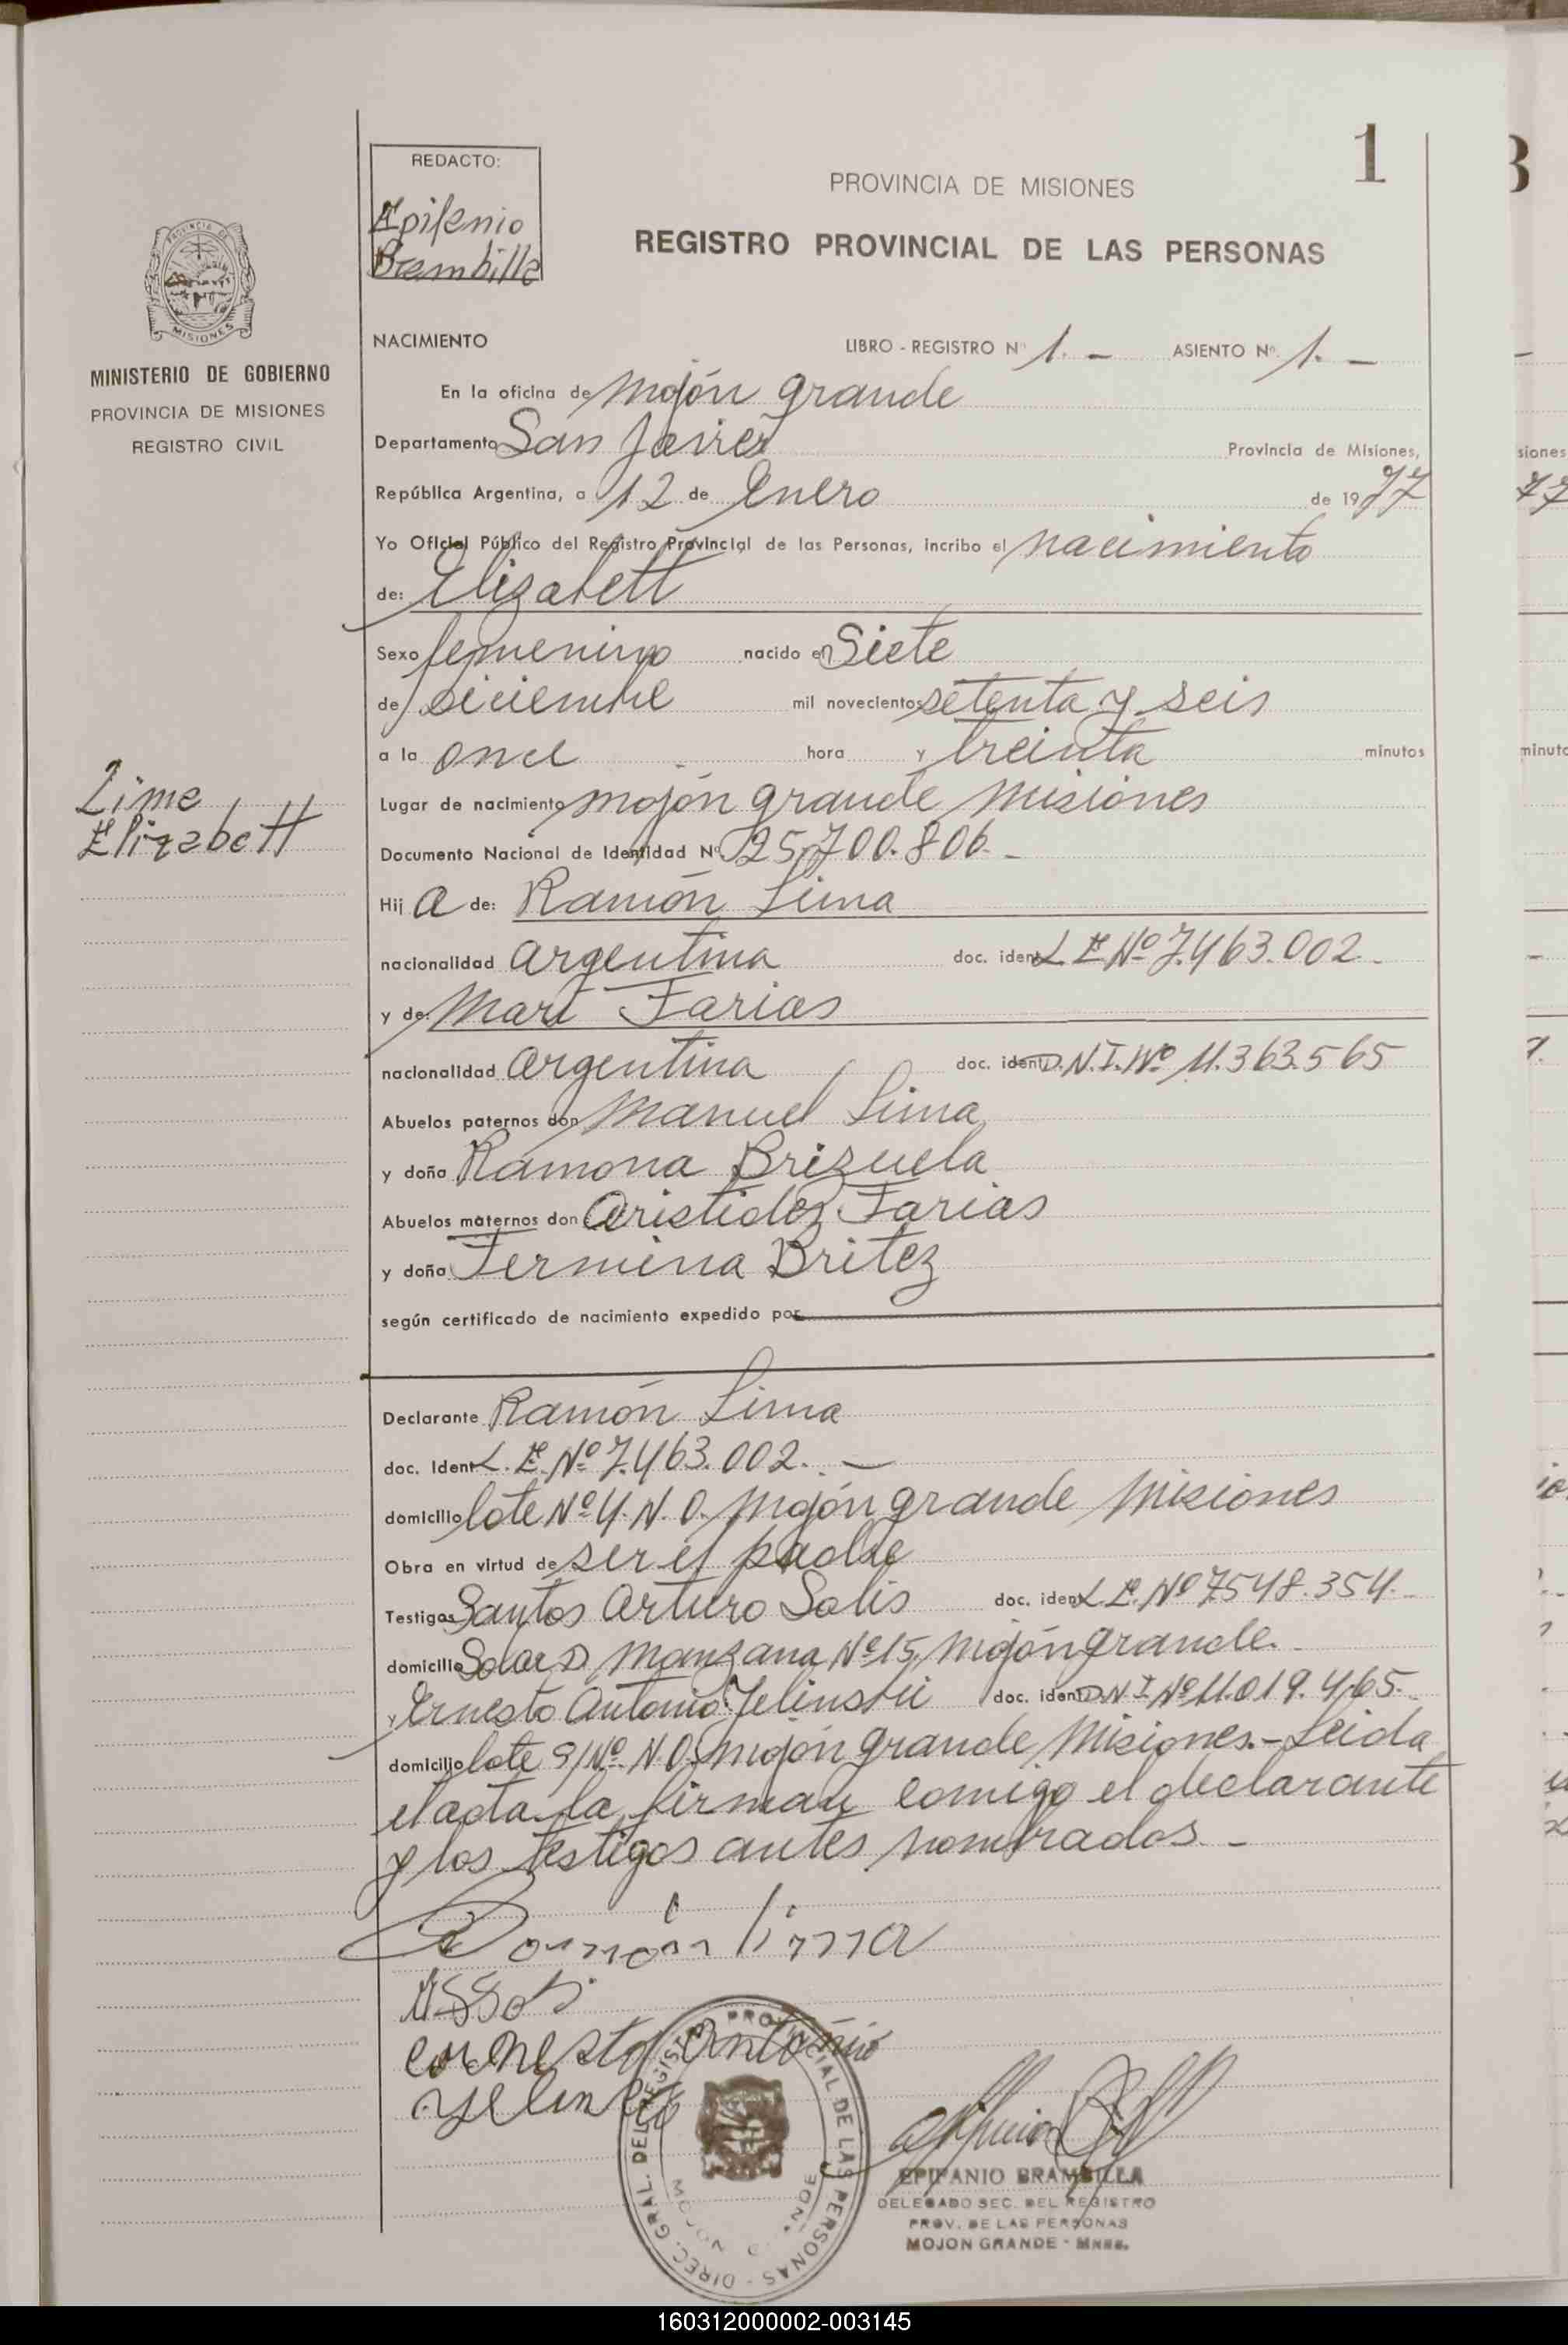 1
REDACTO:
Epifenio
Brambilla
PROVINCIA DE MISIONES
REGISTRO PROVINCIAL DE LAS PERSONAS
PROVINCIA DE
MISIONES
MINISTERIO DE GOBIERNO
PROVINCIA DE MISIONES
REGISTRO CIVIL
NACIMIENTO LIBRO - REGISTRO Nº 1. - ASIENTO Nº. 1. -
En la oficina de Mojón grande
Departamento San Javier Provincia de Misiones,
República Argentina, a 12 de Enero de 1977
Yo Oficial Público del Registro Provincial de las Personas, incribo el nacimiento
de: Elizabett
Sexo femenino nacido en Siete
de diciembre mil novecientos setenta y seis
a la once hora y treinta minutos
Lima
Elizabett
Lugar de nacimiento Mojón grande Misiones
Documento Nacional de Identidad Nº 25.700.806. -
Hij a de: Ramón Lima
nacionalidad argentina doc. ident. L.E.Nº 7.463.002.
y de: Mari Farias
nacionalidad argentina doc. ident. D.N.I.Nº 11.363.565
Abuelos paternos don Manuel Lima
y doña Ramona Brizuela
Abuelos maternos don Aristidez Farias
y doña Fermina Britez
según certificado de nacimiento expedido por
Declarante Ramón Lima
doc. Ident. L.E.Nº 7.463.002. -
domicilio lote Nº 4. N.O. Mojón grande Misiones
Obra en virtud de ser el padre
Testigos Santos Arturo Solis doc. ident. L.E.Nº 7548.354.
domicilio Solar D Manzana Nº 15, Mojón grande.
y Ernesto Antonio Yelinski doc. ident. D.N.I.Nº 11.019.465.
domicilio lote S/Nº. N.O. Mojón grande Misiones.- Leida
el acta la firman comigo el declarante
y los testigos antes nombrados. -
Ramón lima
ernesto antonio
DIREC. GRAL. DEL REGISTRO PROVINCIAL DE LAS PERSONAS
EPIFANIO BRAMBILLA
DELEGADO SEC. DEL REGISTRO
PROV. DE LAS PERSONAS
MOJON GRANDE - Mnes.
160312000002-003145